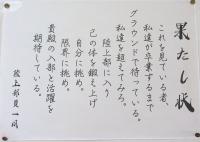 果たし状
これを見ている者、
私達が卒業するまで
グラウンドで待っている。
私達を超えてみろ。
陸上部に入り
己の体を鍛え上げ
自分に挑め。
限界に挑め。
貴殿の入部と活躍を
期待している。
陸上部員一同